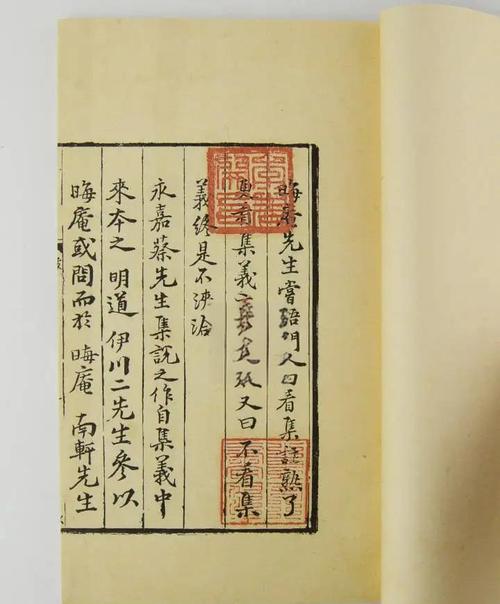 晦庵先生嘗語門人曰看集註熟了
更看集義方是又曰不看集
義終是不浹洽
永嘉蔡先生集說之作自集義中
來本之 明道 伊川二先生參以
晦庵或問而於 晦庵 南軒先生